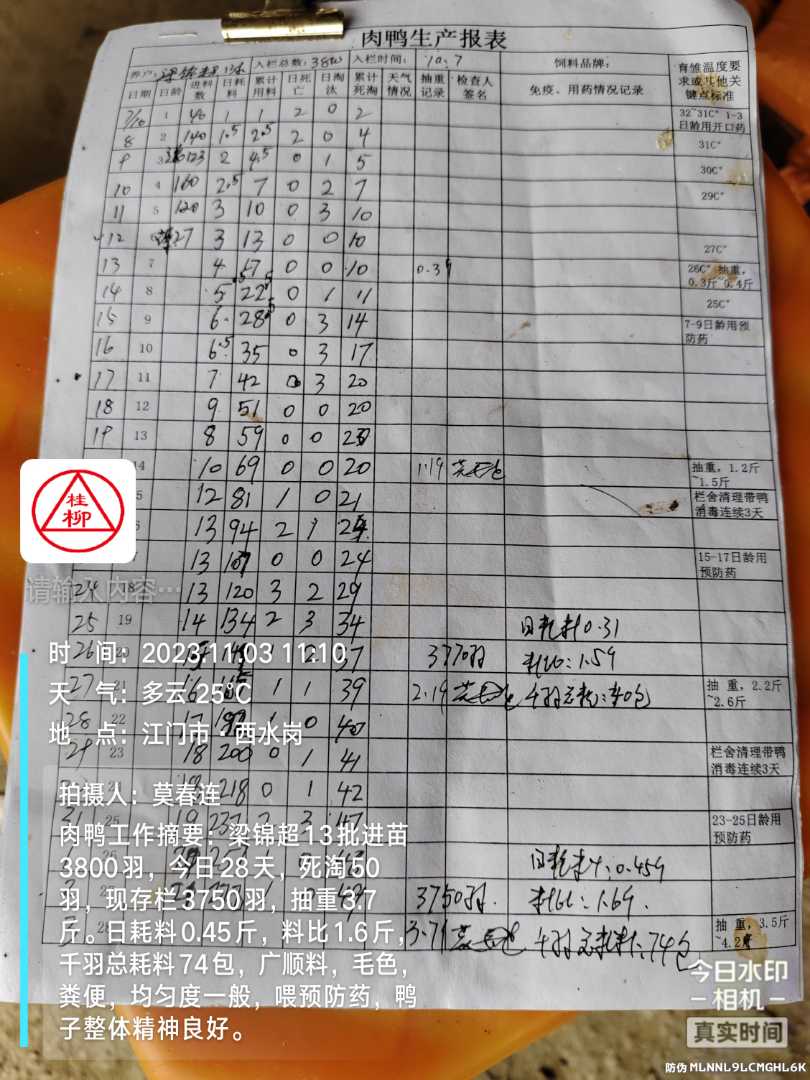 肉鸭生产报表
养户: 梁锦超 入栏总数: 38 入栏时间: 10.7 饲料品牌: 育雏温度要求或其他关键点标准
日期 日龄 进料数 日耗料 累计用料 日死亡 日淘汰 累计死淘 天气情况 抽重记录 检查人签名 免疫、用药情况记录
1 40 1 1 2 0 2 32~31C° 1-3日龄用开口药
8 2 140 1.5 2.5 2 0 4 31C°
9 3 123 2 4.5 0 1 5 30C°
10 4 160 2.5 7 0 2 7 29C°
11 5 120 3 10 0 3 10
12 27 3 13 0 0 10 27C°
13 7 4 17 0 0 10 0.39 26C° 抽重,0.3斤~0.4斤
14 8 5 22.5 0 1 11 25C°
15 9 6 28.5 0 3 14 7-9日龄用预防药
16 10 6.5 35 0 3 17
17 11 7 42 0 3 20
18 12 9 51 0 0 20
19 13 8 59 0 0 20
14 10 69 0 0 20 1.19 抽重,1.2斤~1.5斤
12 81 1 0 21 栏舍清理带鸭消毒连续3天
13 94 2 1 24
13 107 0 0 24 15-17日龄用预防药
24 18 13 120 3 2 29
25 19 14 134 2 3 34 日耗料0.31
26 20 1 2 37 3770羽 料比:1.59
27 21 16 1 1 39 2.19 千羽总耗:40包 抽重,2.2斤~2.6斤
28 22 17 1 0 40
29 23 18 200 0 1 41 栏舍清理带鸭消毒连续3天
218 0 1 42
31 25 19 237 3 47 23-25日龄用预防药
日耗料:0.459
3750羽 料比:1.69
3.71 千羽总耗料:74包 抽重,3.5斤~4.2斤
桂柳
请输入内容…
时 间：2023.11.03 11:10
天 气：多云 25℃
地 点：江门市·西水岗
拍摄人：莫春连
肉鸭工作摘要：梁锦超13批进苗
3800羽，今日28天，死淘50
羽，现存栏3750羽，抽重3.7
斤。日耗料0.45斤，料比1.6斤，
千羽总耗料74包，广顺料，毛色，
粪便，均匀度一般，喂预防药，鸭
子整体精神良好。
今日水印
相机
真实时间
防伪 MLNNL9LCMGHL6K